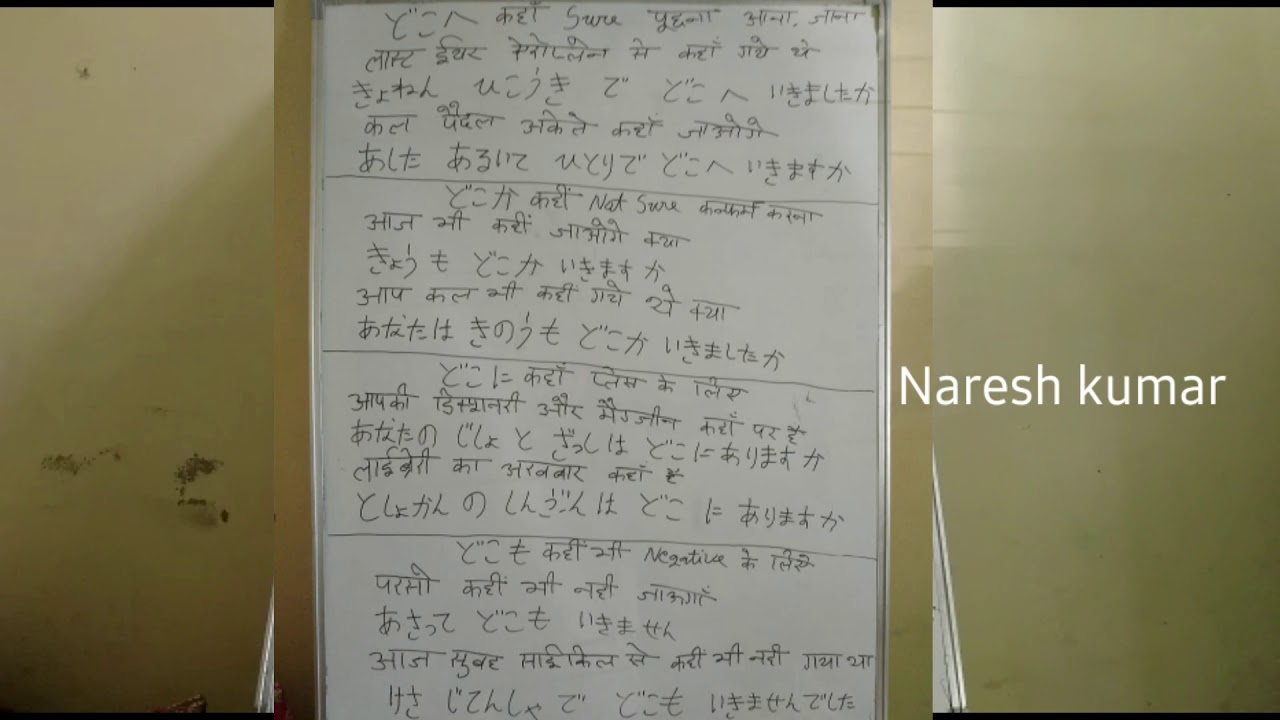 どこへ कहाँ Sure पूछना आना, जाना
लास्ट ईयर ऐरोप्लेन से कहाँ गये थे
きょねん ひこうき で どこ へ いきましたか
कल पैदल अकेले कहाँ जाओगे
あした あるいて ひとりで どこへ いきますか
どこか कहीं Not Sure कन्फर्म करना
आज भी कहीं जाओगे क्या
きょう も どこか いきますか
आप कल भी कहीं गये थे क्या
あなたは きのうも どこか いきましたか
どこに कहाँ प्लेस के लिए
आपकी डिक्शनरी और मैग्जीन कहाँ पर है
あなたの じしょ と ざっしは どこに ありますか
लाईब्रेरी का अखबार कहाँ है
としょかん の しんぶんは どこ に ありますか
どこも कहीं भी Negative के लिए
परसो कहीं भी नही जाऊगाँ
あさって どこも いきません
आज सुबह साईकिल से कहीं भी नही गया था
けさ じてんしゃ で どこも いきませんでした
Naresh kumar